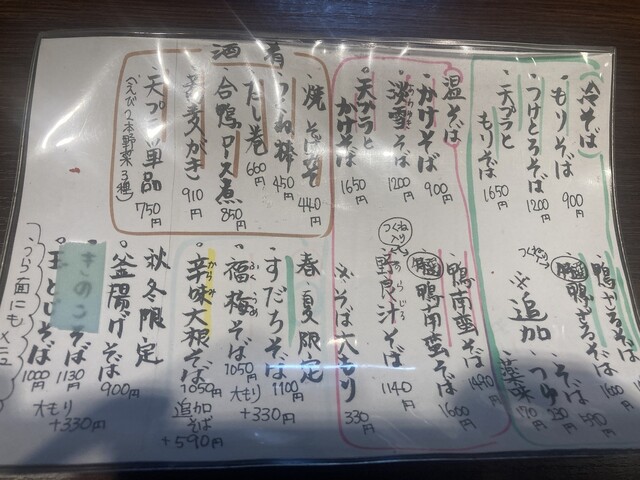 冷そば
・もりそば 900円
・つけとろそば 1200円
・天プラともりそば 1650円
・鴨ざるそば 1600円
つくね入り 鴨ざるそば
※追加
そば
つゆ
薬味 170円
温そば
・かけそば 900円
あわゆき
・淡雪そば 1200円
・天プラとかけそば 1650円
・鴨南蛮そば 1490円
鴨南蛮そば 1600円
つくね入り
のらじる
野良汁そば 1140円
※そば大もり 330円
酒肴
・焼そばみそ 440円
・つくね棒 450円
・だし巻 660円
・合鴨ロース煮 850円
・蕎麦がき 910円
・天プラ単品 750円
(えび2本野菜3種)
春夏限定
・すだちそば 1100円
ふくうめ
・福梅そば 1050円
大もり+330円
からみ
・辛味大根そば 1050円
追加そば+590円
秋冬限定
・釜揚げそば 900円
・きのこそば 1130円
・玉とじそば 1000円
大もり+330円
うら面にもメニュ